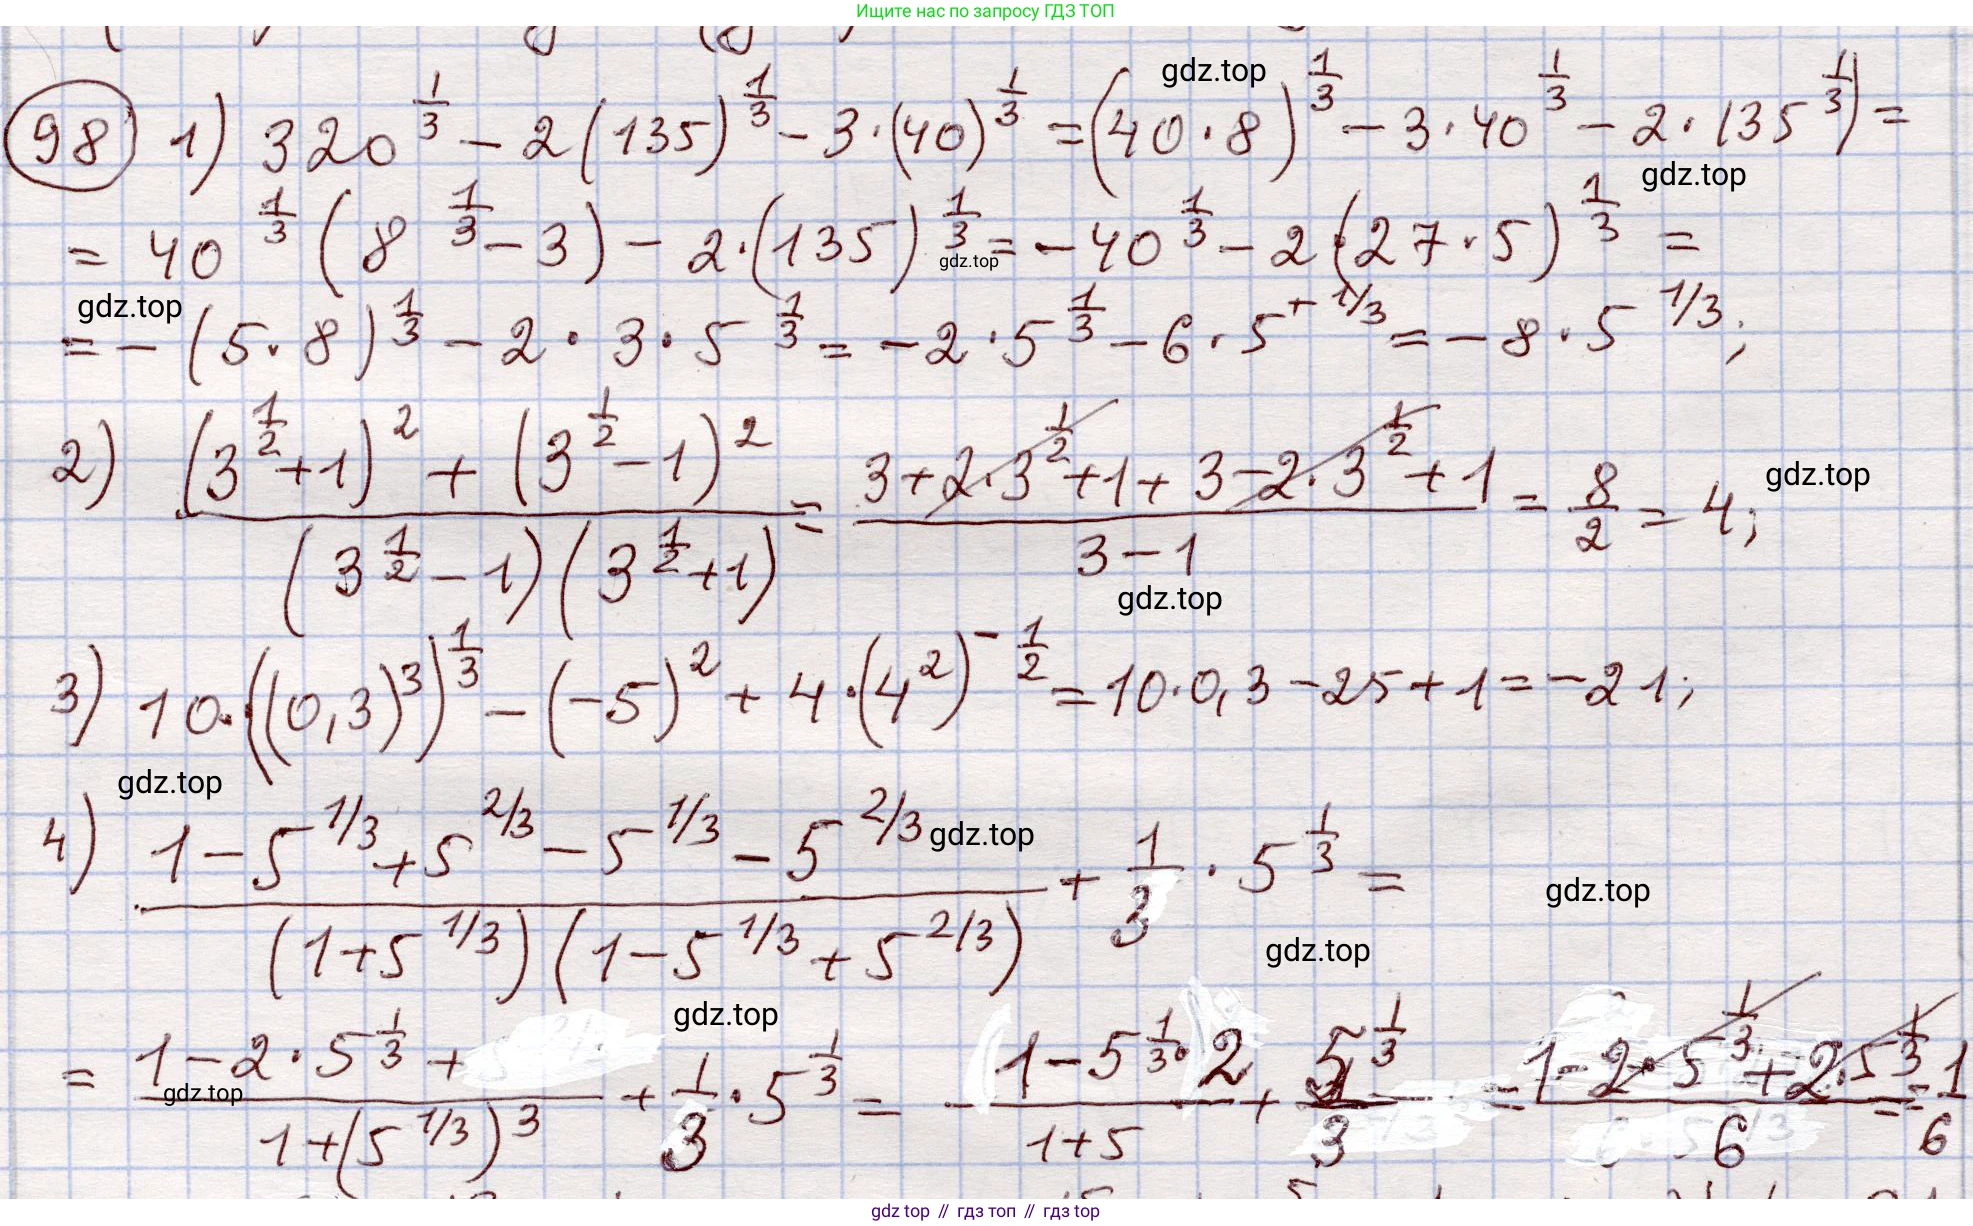 Ищите нас по запросу ГДЗ ТОП
gdz.top
98 1) 320^(1/3) - 2(135)^(1/3) - 3·(40)^(1/3) = (40·8)^(1/3) - 3·40^(1/3) - 2·135^(1/3)) =
gdz.top
= 40^(1/3) (8^(1/3) - 3) - 2·(135)^(1/3) = -40^(1/3) - 2·(27·5)^(1/3) =
gdz.top
gdz.top
= -(5·8)^(1/3) - 2·3·5^(1/3) = -2·5^(1/3) - 6·5^(+1/3) = -8·5^(1/3);
2) ((3^(1/2)+1)^2 + (3^(1/2)-1)^2) / ((3^(1/2)-1)(3^(1/2)+1)) = (3+2·3^(1/2)+1+3-2·3^(1/2)+1) / (3-1) = 8/2 = 4;
gdz.top
gdz.top
3) 10·((0,3)^3)^(1/3) - (-5)^2 + 4·(4^2)^(-1/2) = 10·0,3 - 25 + 1 = -21;
gdz.top
4) (1-5^(1/3)+5^(2/3)-5^(1/3)-5^(2/3)) / ((1+5^(1/3))(1-5^(1/3)+5^(2/3))) + 1/3·5^(1/3) =
gdz.top
gdz.top
gdz.top
gdz.top
= (1-2·5^(1/3)+) / (1+(5^(1/3))^3) + 1/3·5^(1/3) = (1-5^(1/3)·2) / (1+5) + 5^(1/3)/3 = (1-2·5^(1/3)+2·5^(1/3)) / 6 = 1/6
gdz.top
gdz top // гдз топ // gdz top